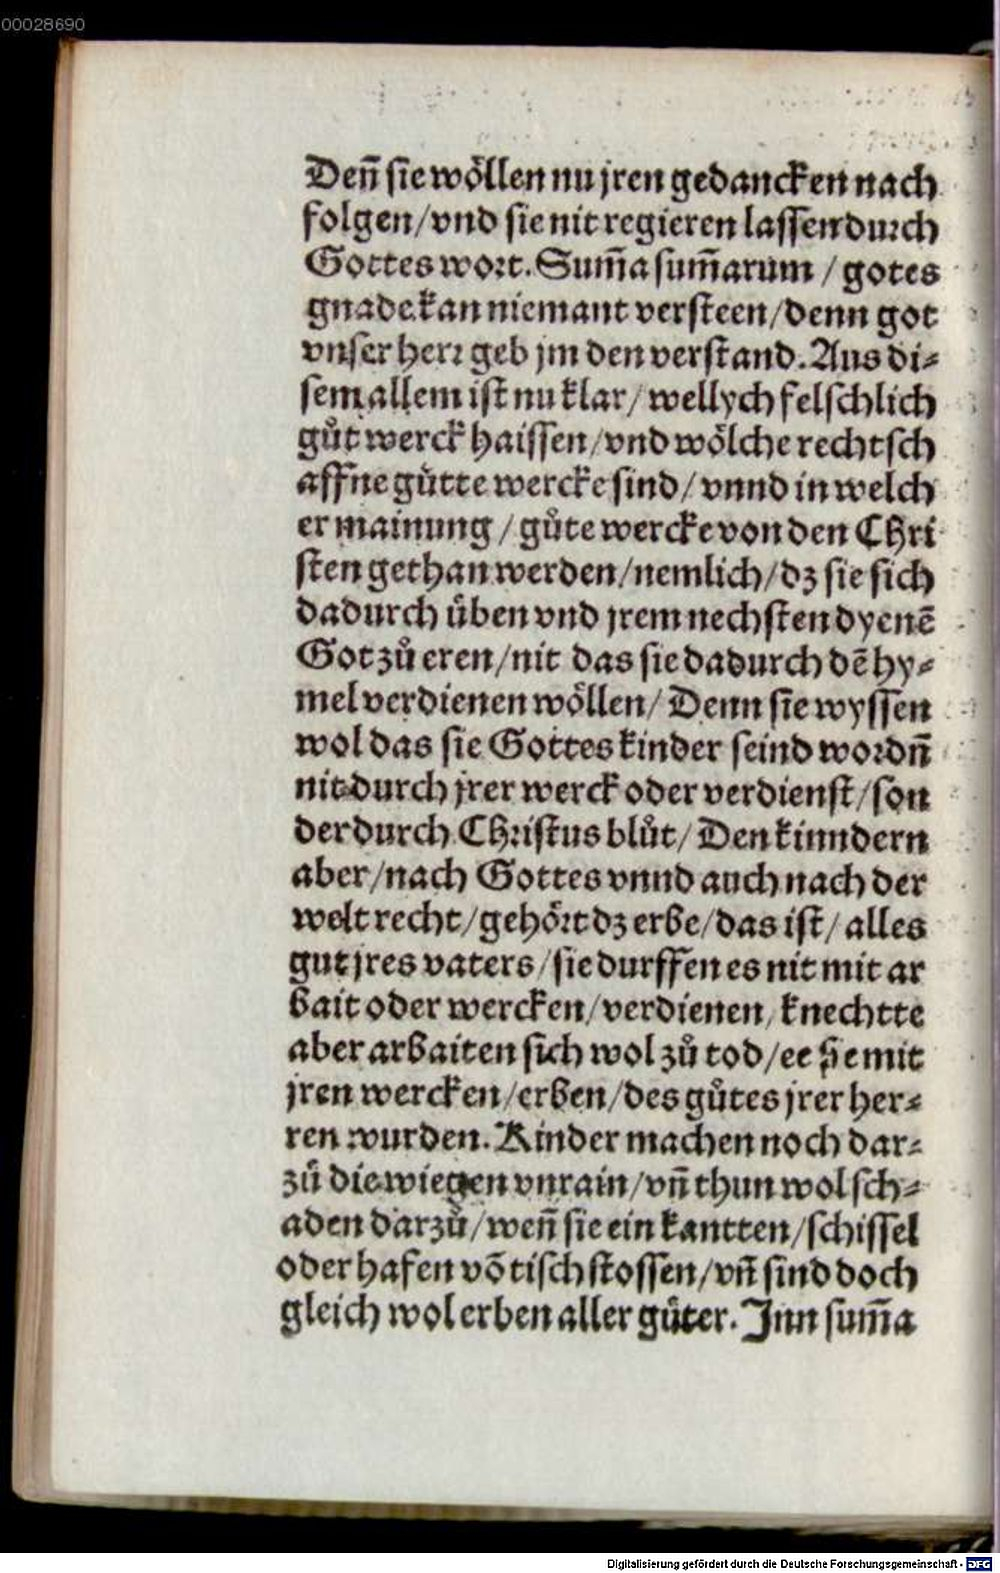 00028690
Deñ sie wöllen nu jren gedancken nach
folgen/vnd sie nit regieren lassen durch
Gottes wort. Sum̃a sum̃arum / gotes
gnade kan niemant versteen/denn got
vnser herr geb jm den verstand. Aus di⸗
sem allem ist nu klar/ wellych felschlich
gůt werck haissen/vnd wölche rechtsch
affne gůtte wercke sind/ vnnd in welch
er mainung / gůte wercke von den Chri
sten gethan werden/nemlich/dz sie sich
dadurch üben vnd jrem nechsten dyenē
Got zů eren/nit das sie dadurch dē hy⸗
mel verdienen wöllen/ Denn sie wyssen
wol das sie Gottes kinder seind wordñ
nit durch jrer werck oder verdienst/son
der durch Christus blůt/ Den kinndern
aber/nach Gottes vnnd auch nach der
welt recht/gehört dz erbe/das ist/ alles
gut jres vaters/sie durffen es nit mit ar
bait oder wercken/verdienen, knechtte
aber arbaiten sich wol zů tod/ee sie mit
jren wercken/erben/des gůtes jrer her⸗
ren wurden. Kinder machen noch dar⸗
zů die wiegen vnrain/vñ thun wol sch⸗
aden darzů/weñ sie ein kantten/schissel
oder hafen võ tisch stossen/vñ sind doch
gleich wol erben aller gůter. Jnn sum̃a
Digitalisierung gefördert durch die Deutsche Forschungsgemeinschaft - DFG